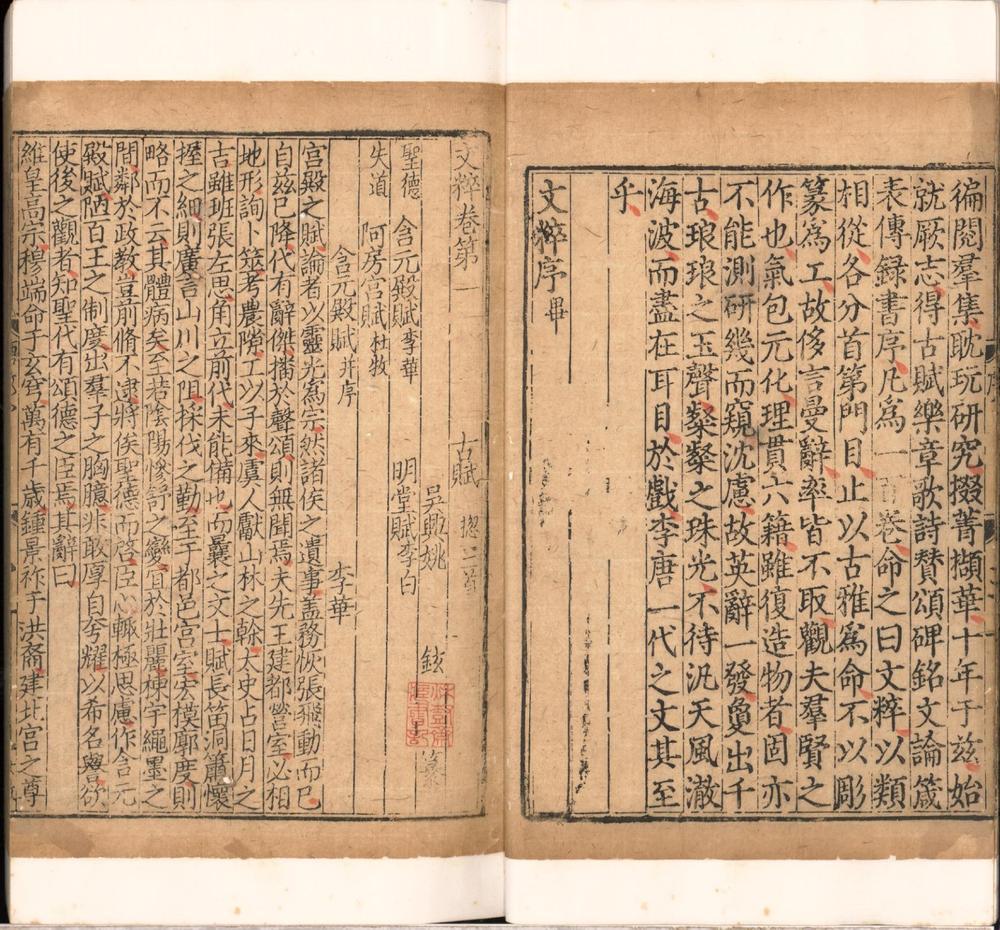 徧閱羣集耽玩研究掇菁擷華十年于兹始
就厥志得古賦樂章歌詩賛頌碑銘文論箴
表傳録書序凡爲一百卷命之曰文粹以類
相從各分首第門目止以古雅爲命不以彫
篆爲工故侈言曼辭率皆不取觀夫羣賢之
作也氣包元化理貫六籍雖復造物者固亦
不能測研幾而窺沈慮故英辭一發敻出千
古琅琅之玉聲粲粲之珠光不待汎天風澈
海波而盡在耳目於戲李唐一代之文其至
乎
文粹序畢
文粹卷第一 古賦 揔三首
吳興姚 鉉 纂
聖德 含元殿賦李華 明堂賦李白
失道 阿房宮賦杜牧
含元殿賦并序 李華
宮殿之賦論者以靈光爲宗然諸侯之遺事盖務恢張飛動而已
自兹已降代有辭傑播於聲頌則無聞焉夫先王建都營室必相
地形詢卜筮考農隙工以子來虞人獻山林之榦太史占日月之
古雖班張左思角立前代未能備也而曩之文士賦長笛洞簫懷
握之細則廣言山川之阻採伐之勤至于都邑宮室宏模廓度則
略而不云其體病矣至若陰陽慘舒之變宜於壯麗棟宇繩墨之
間鄰於政教豈前脩不逮將俟聖德而啓臣心輒極思慮作含元
殿賦陋百王之制度出羣子之胸臆非敢厚自夸耀以希名譽欲
使後之觀者知聖代有頌德之臣焉其辭曰
維皇高宗穆端命于玄穹萬有千歲鍾景祚于洪裔建北宮之尊